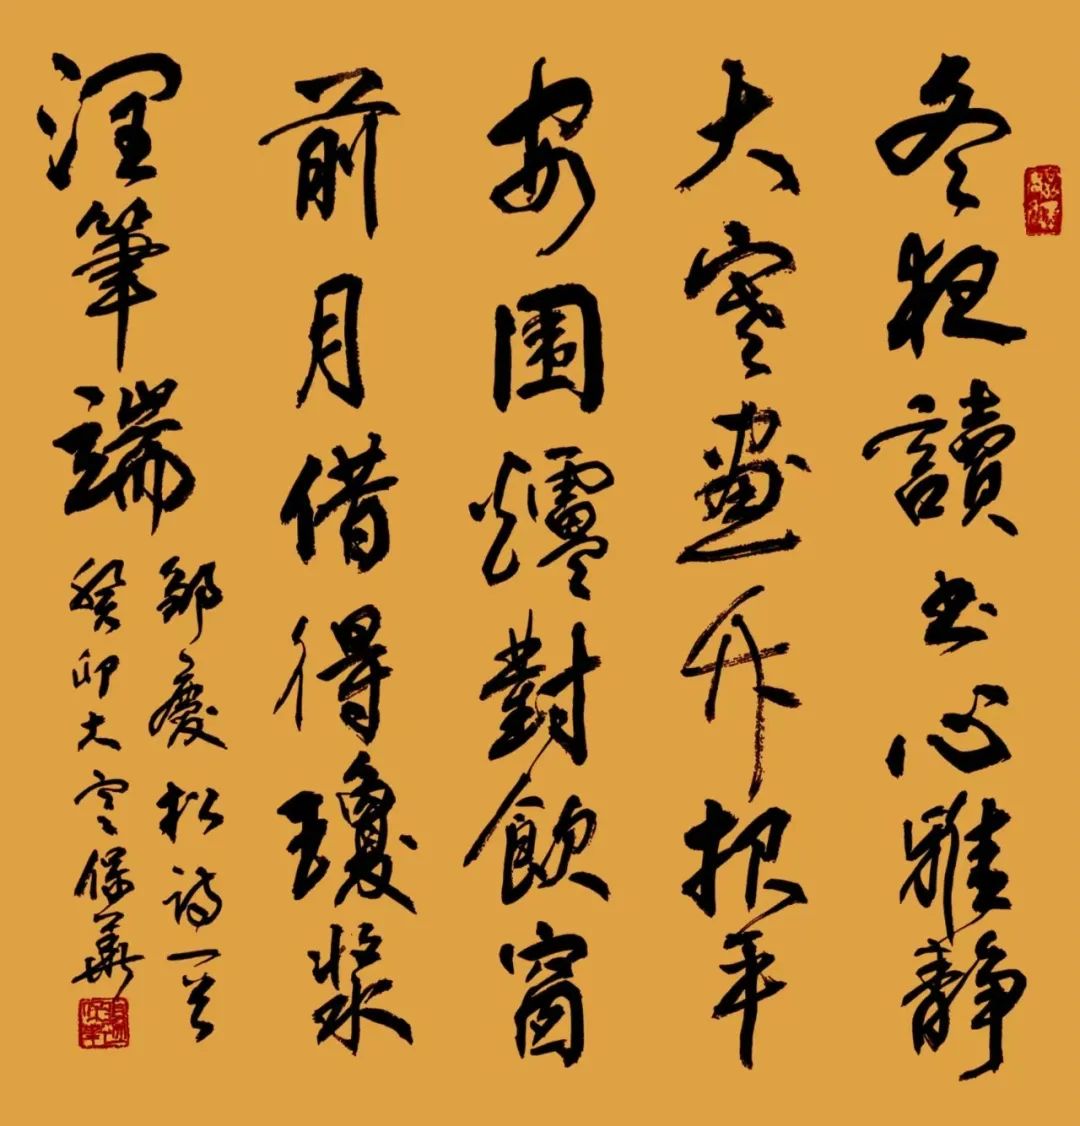 冬夜讀书心雅靜
大寒画竹报平
安围爐對飲窗
前月借得瓊漿
润筆端
邹慶松詩一首
癸卯大寒保華